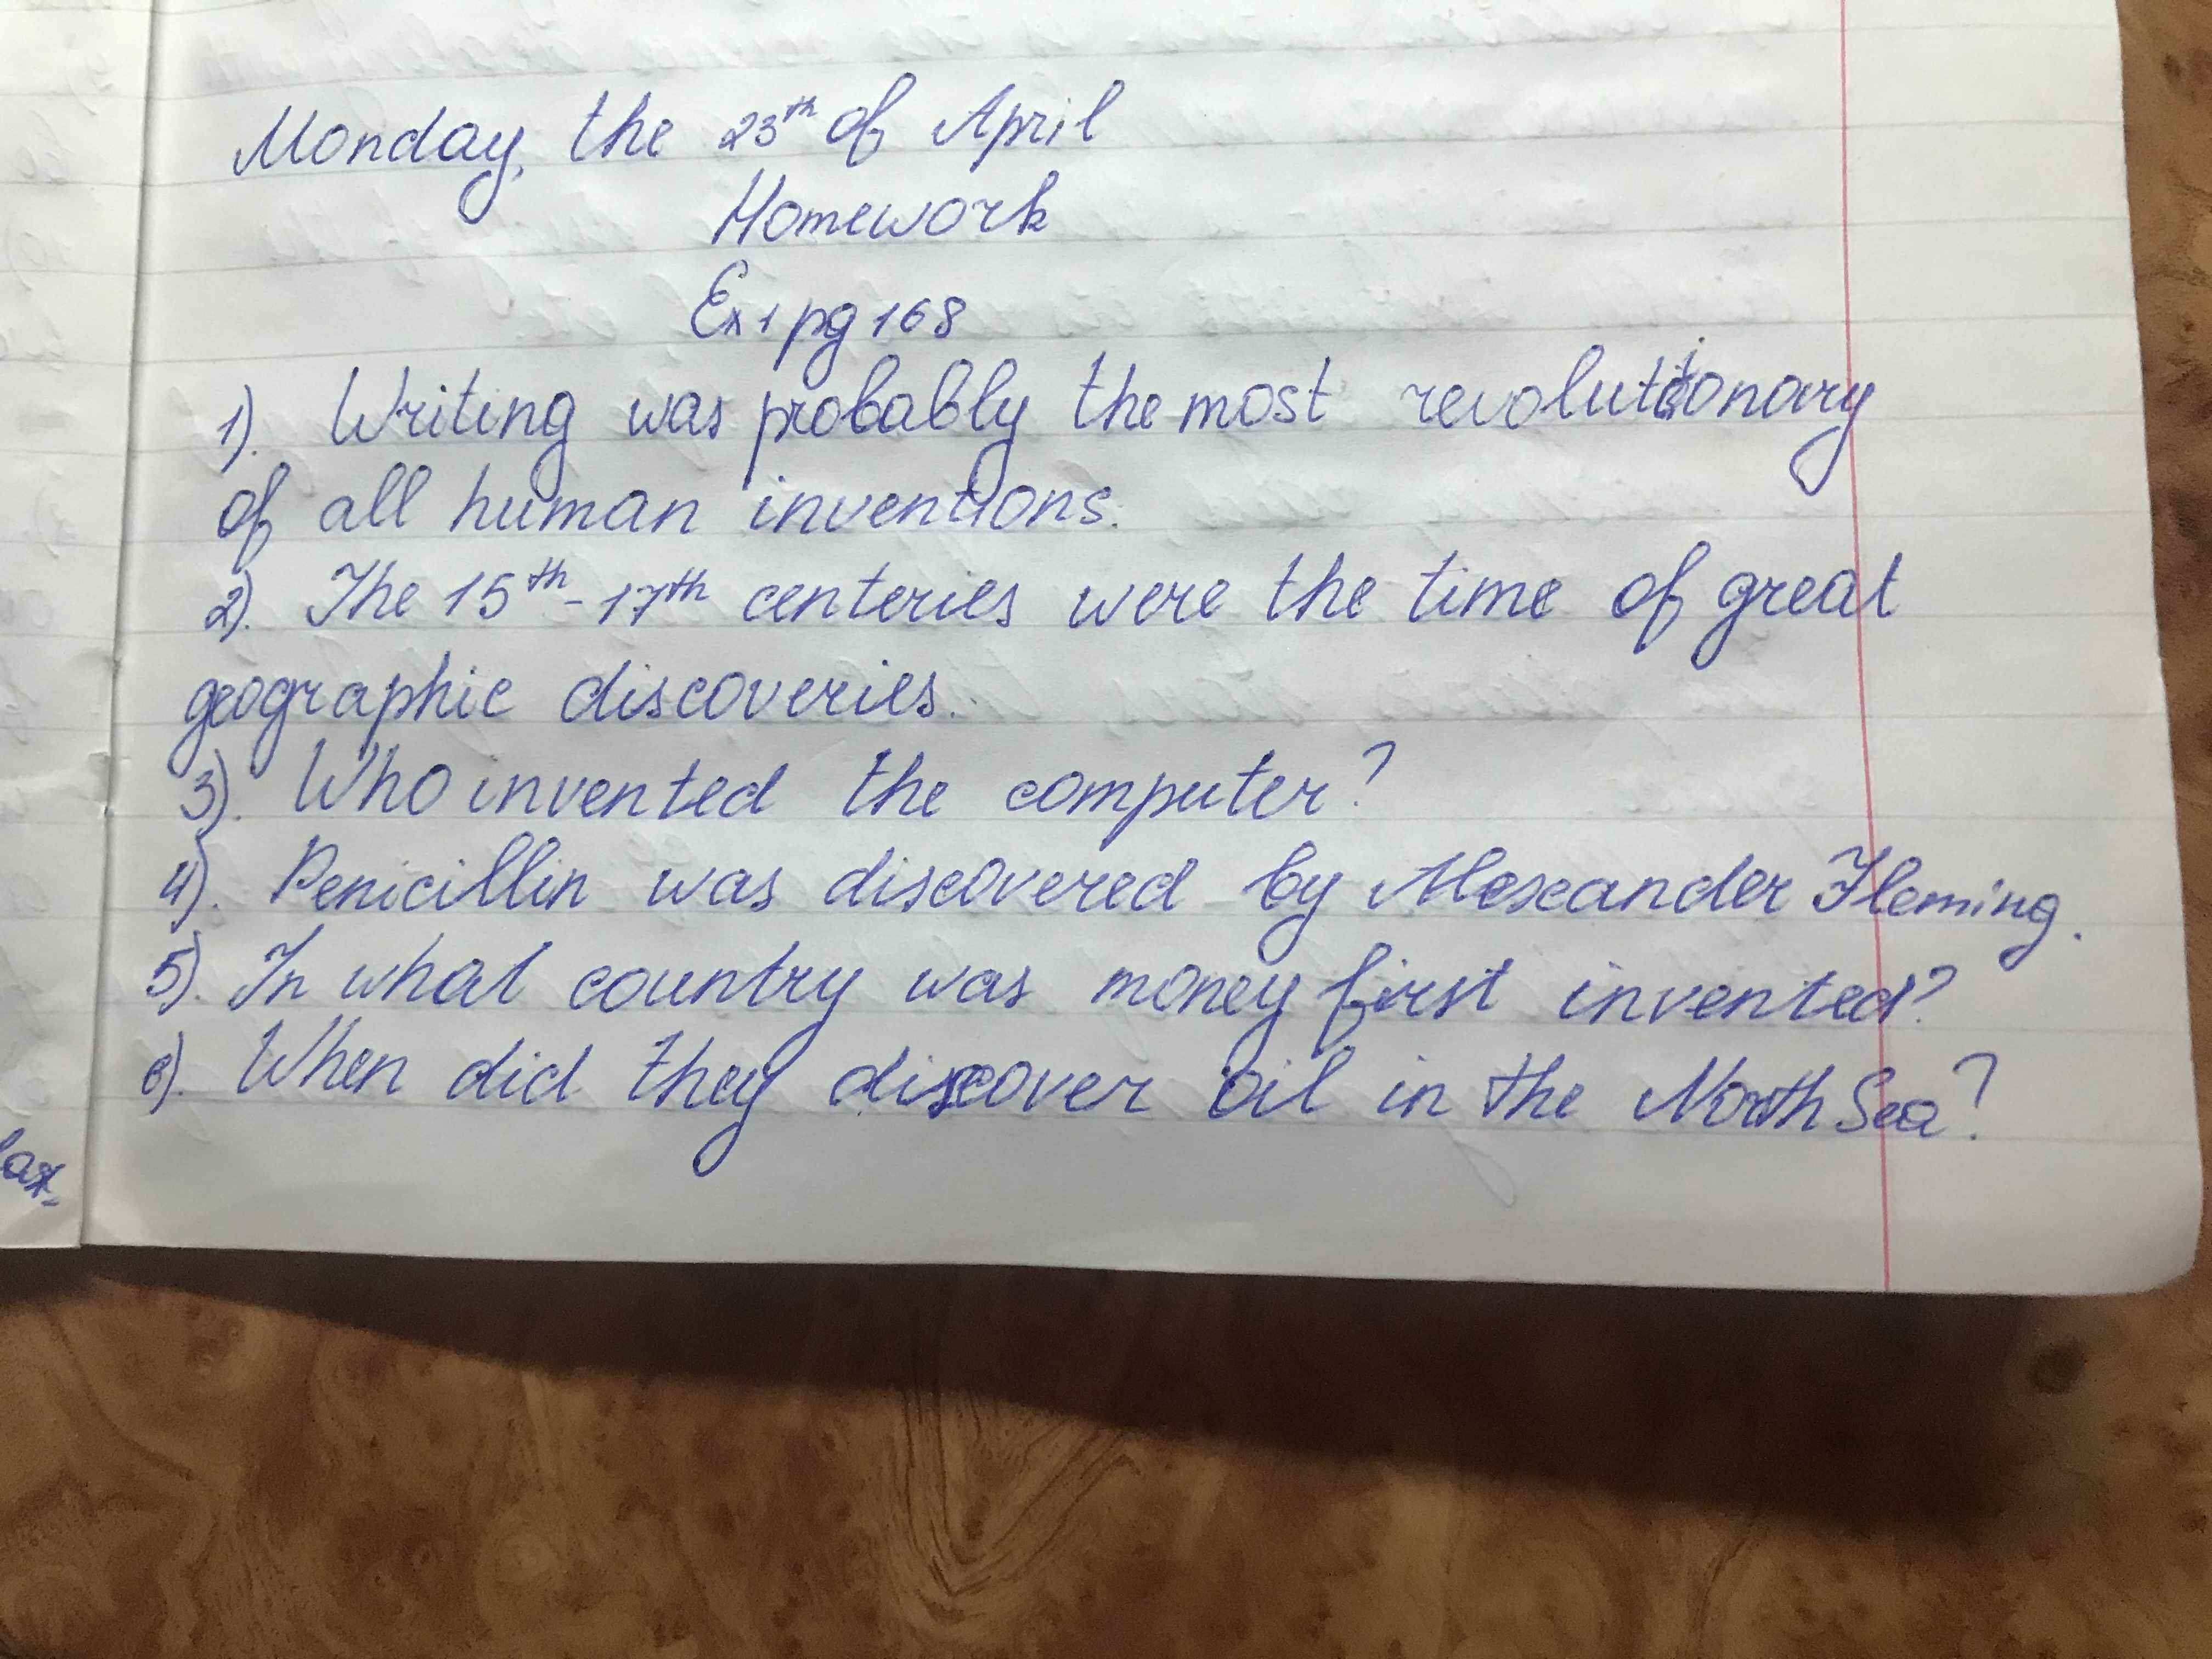 Monday, the 23th of April
Homework
Ex 1 pg 168
1). Writing was probably the most revolutionary
of all human inventions.
2). The 15th - 17th centeries were the time of great
geographic discoveries.
3). Who invented the computer?
4). Penicillin was discovered by Alexander Fleming.
5). In what country was money first invented?
6). When did they discover oil in the North Sea?